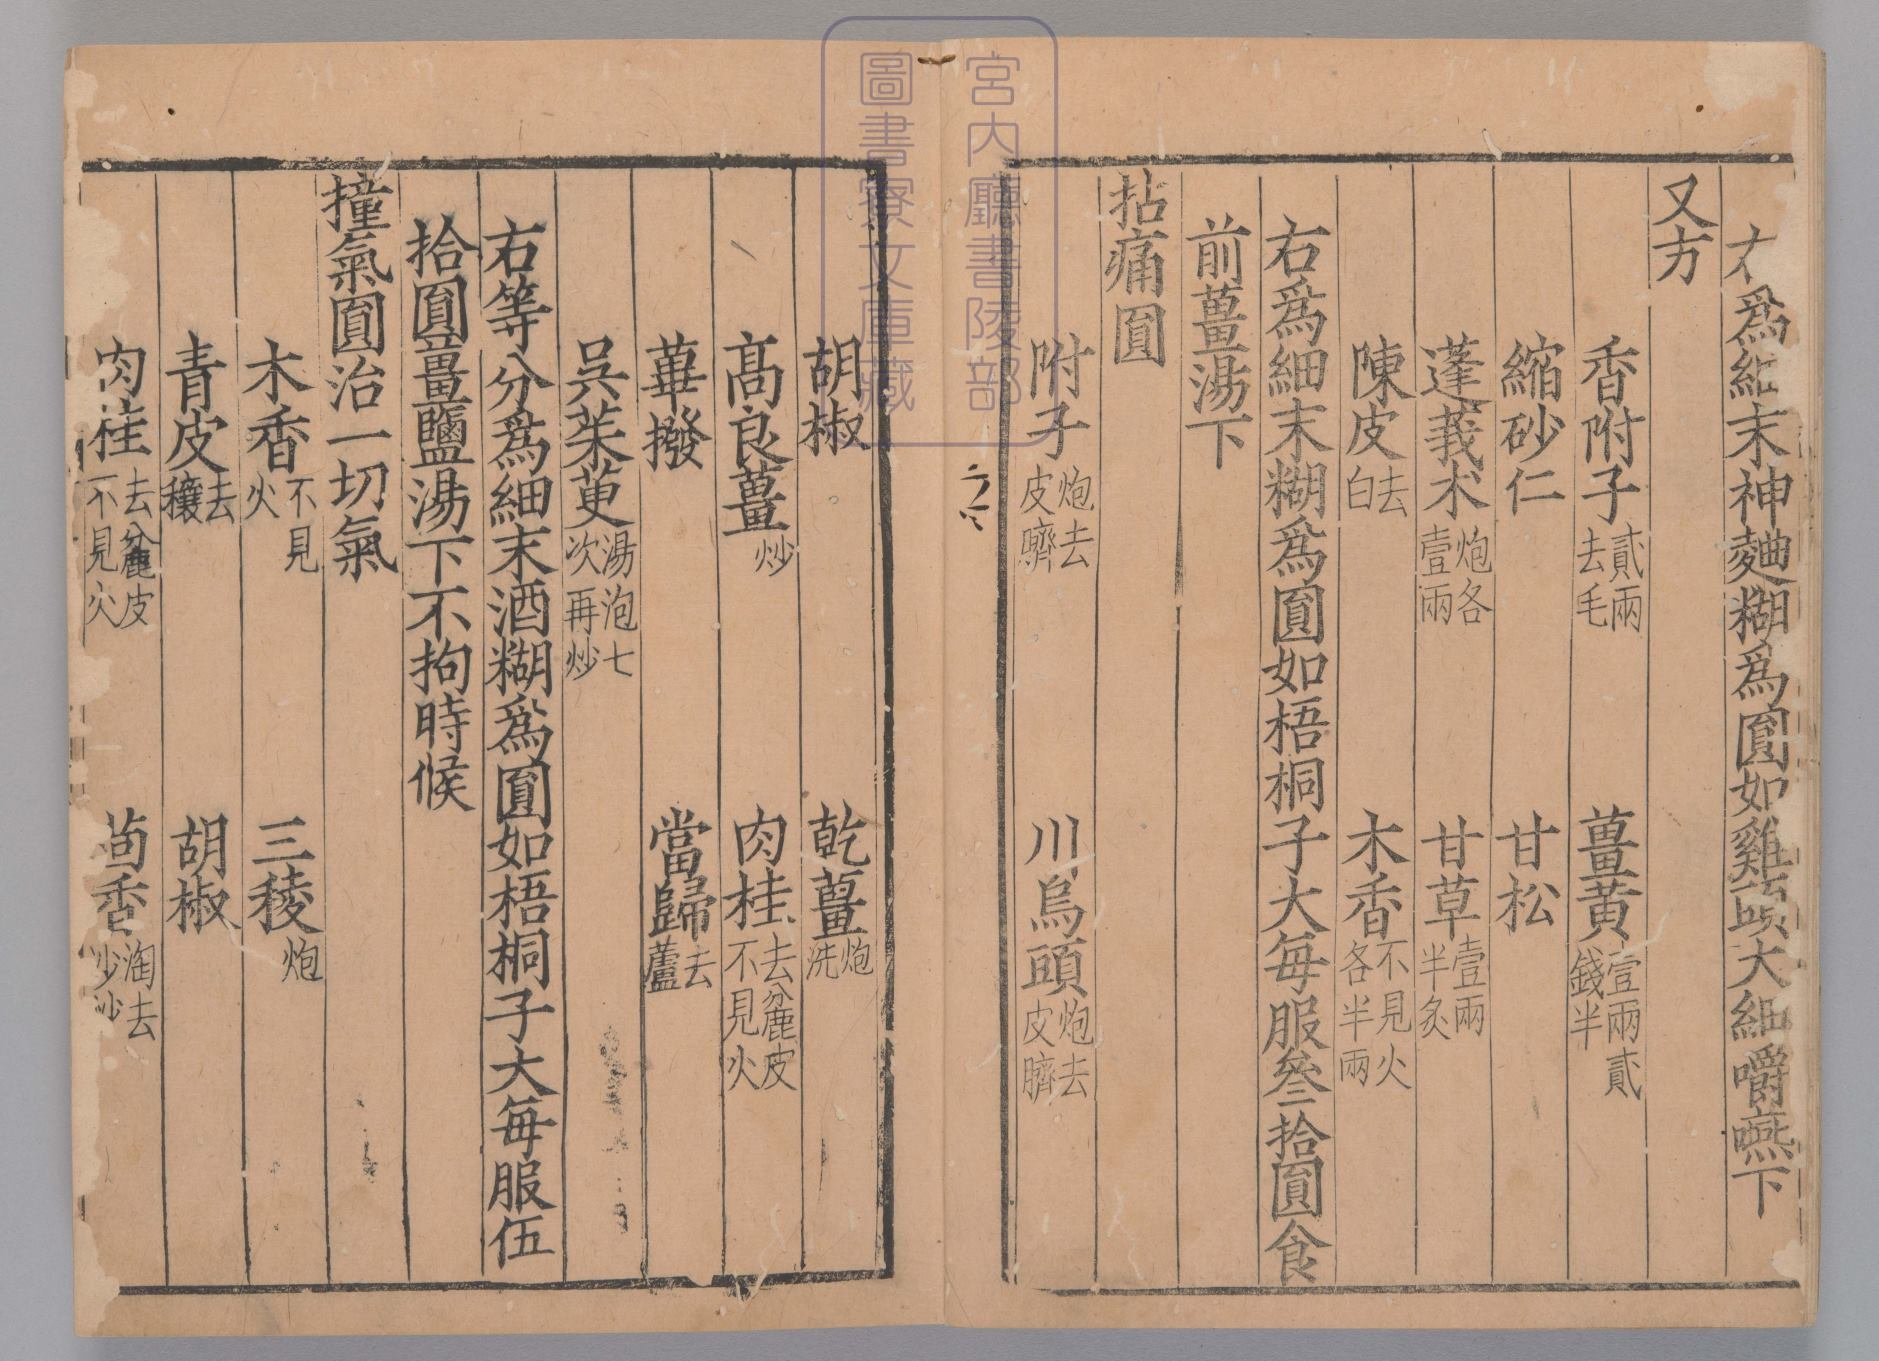 右爲細末神麯糊爲圓如雞頭大細嚼嚥下
又方
香附子貳兩去毛 薑黃壹兩貳錢半
縮砂仁 甘松
蓬莪朮炮各壹兩 甘草壹兩半炙
陳皮去白 木香不見火各半兩
右爲細末糊爲圓如梧桐子大每服叄拾圓食
前薑湯下
拈痛圓
附子炮去皮臍 川烏頭炮去皮臍
胡椒 乾薑炮洗
高良薑炒 肉桂去麄皮不見火
蓽撥 當歸去蘆
吳茱萸湯泡七次再炒
右等分爲細末酒糊爲圓如梧桐子大每服伍
拾圓薑鹽湯下不拘時候
撞氣圓治一切氣
木香不見火 三稜炮
青皮去穰 胡椒
肉桂去麄皮不見火 茴香淘去沙炒
宮内廳書陵部
圖書寮文庫藏